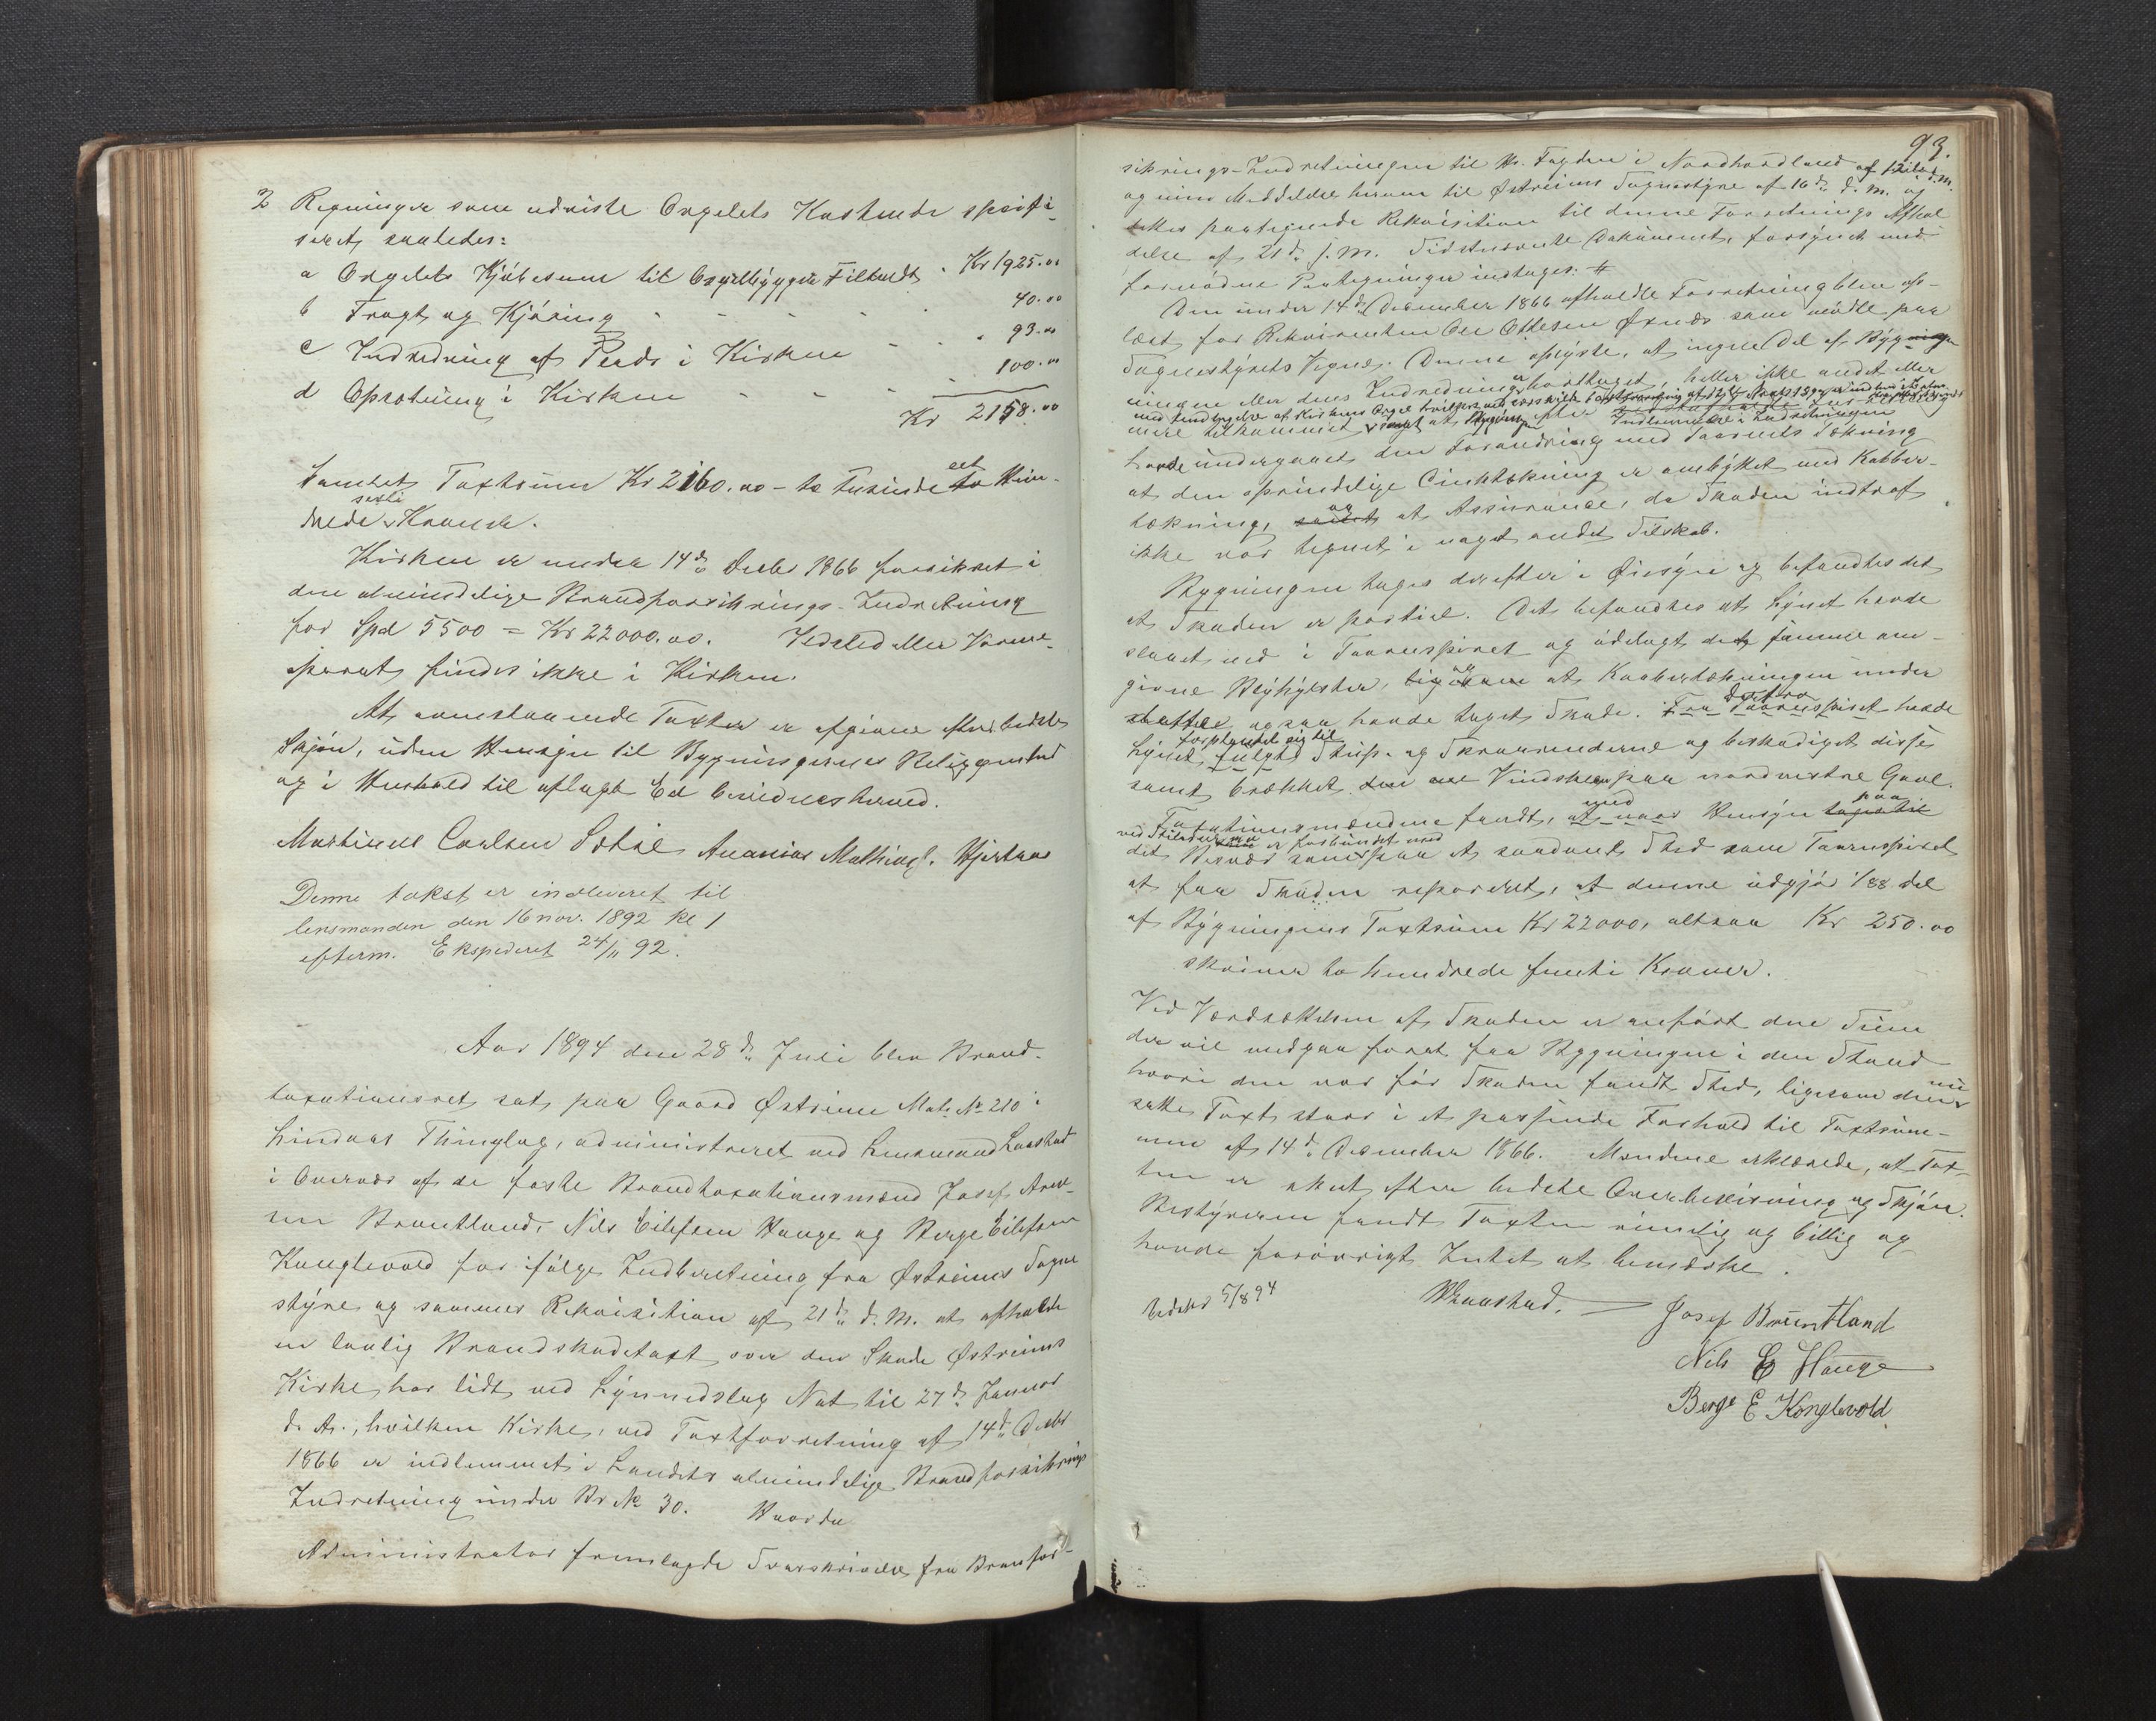 2 Regninger som udviste Orgelets Kostende specifi-
seret saaledes:
a Orgelets Kjøbesum til Orgelbygger Kr 1925.00
b Fragt og Kjøring 40.00
c Indredning af Plads i Kirken 93.00
d Opsætning i Kirken 100.00
Kr 2158.00
Samlet Taxtsum Kr 2160.00 - to tusinde et Hun-
drede sexti Kroner.
Kirken er under 14de Decbr 1866 forsikret i
den almindelige Brandforsikrings-Indretning
for Spd 5500 = Kr 22000.00. Ildsted eller Varme-
aparat findes ikke i Kirken.
At ovenstaaende Taxter er afgivne efter bedste
Skjøn, uden Hensyn til Bygningernes Beliggenhed
og i Henhold til aflagt Ed bevidnes herved.
Martinus Carlsen Ananias Mathiass. Hjertaas
Denne takst er indleveret til
lensmanden den 16 nov. 1892 kl 1
efterm. Ekspederet 24/11 92.
Aar 1894 den 28de Juli blev Brand-
taxationsret sat paa Gaard Østreim Matr. No 210 i
Lindaas Thinglag, administreret ved Lensmand
i Overvær af de faste Brandtaxationsmænd Josef
Bruntland, Nils Eilefsen Hauge og Berge Eilefsen
Konglevold for ifølge Indberetning fra Østreims Sogne
styre og sammes Rekvisition af 21de d. M. at afholde
en lovlig Brandskadetaxt over den Skade Østreims
Kirke har lidt ved Lynnedslag Nat til 27de Januar
d. A., hvilken Kirke, ved Taxtforretning af 14de Decbr
1866 er indlemmet i Landets almindelige Brandforsikrings
Indretning under Br No 30. Hvorda
Administrator fremlagde Skrivelse fra Branfor-
93.
sikrings-Indretningen til Hr. Fogden i Nordhordland af d.M.
og min Meddelelse herom til Østreims Sognestyre af 16de d. M. og
dettes paategnede Rekvisition til denne Forretnings Afhol
delse af 21de s. M. Sidstnævnte Dokument, forsynet med
fornødne Paategninger indtages: #
Den under 14de December 1866 afholdte Forretning blev op-
læst for Rekvirenten Ole Ottesen som mødte paa
Sognestyrets Vegne. Denne oplyste, at ingen Del af Bygnin
ingen eller dens Indredning er borttaget, heller ikke andet eller
med Undtagelse af Kirkens Orgel
mere tilkommet samt at Bygningen Indredningen
havde undergaaet den Forandring med Taarnets Tækning
at den oprindelige Zinktækning er ombyttet med Kobber-
tækning, samt og at Assurance, da Skaden indtraf
ikke var tegnet i noget andet Selskab.
Bygningen toges derefter i Øiesyn og befandtes det
at Skaden er partiel. Det befandtes at Lynet havde
slaaet ned i Taarnspiret og ødelagt det samme om-
givne Blyhylster, ligesom og at Kobbertækningen under
ogsaa havde taget Skade. Fra Taarnspiret Derfra havde
Lynet fulgt forplantet sig til og Taarnrenderne og beskadiget disse
samt brækket Vindskeer paa nordvestre Gavl.
Taxationsmændene fandt, at naar med Hensyn toges til paa
ved Stilladser er forbundet med
det Besvær som paa et saadant Sted som Taarnspiret
at faa Skaden repareret, at denne udgjør 1/88 del
af Bygningens Taxtsum Kr 22000, altsaa Kr 250.00
skriver to hundrede femti Kroner.
Ved Værdsættelsen af Skaden er anført den Sum
der vil medgaa forat faa Bygningen i den Stand
hvori den var før Skaden fandt Sted, ligesom den nu
satte Taxt staar i et passende Forhold til Taxtsum-
men af 14de December 1866. Mændene erklærede, at Tax-
ten er sket efter bedste Overbevisning og Skjøn.
Bestyreren fandt Taxten rimelig og billig og
havde forøvrigt Intet at bemærke.
Udskr 5/8 94
Josef Bruntland
Nils E Hauge
Berge E Konglevold